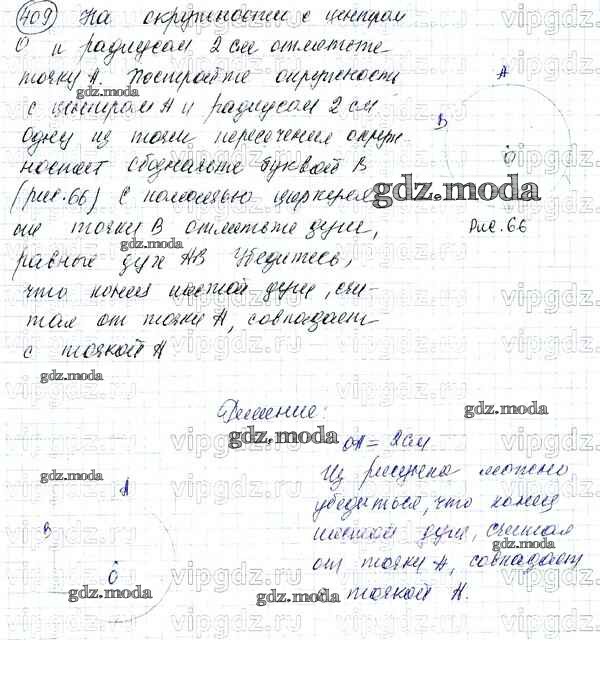 409 На окружности с центром
О и радиусом 2 см отметьте
точку А. Постройте окружность
с центром А и радиусом 2 см
Одну из точек пересечения окруж-
ностей обозначьте буквой В
(рис.66) С помощью циркуля
от точки В отметьте дуги,
равные дуге АВ Убедитесь,
что конец шестой дуги, счи-
тая от точки А, совпадает
с точкой А
А
В
О
Рис.66
gdz.moda
Решение:
ОА = 2см
Из рисунка можно
убедиться, что конец
шестой дуги, считая
от точки А, совпадает
с точкой А.
А
В
О
gdz.moda
vipgdz.ru